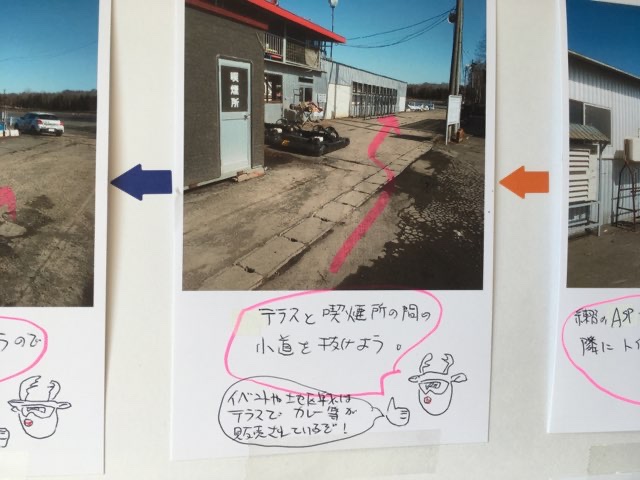 喫煙所
うので
テラスと喫煙所の間の
小道を抜けよう。
イベントや地区戦は
テラスで カレー等が
販売されているぞ!
隣にトイ